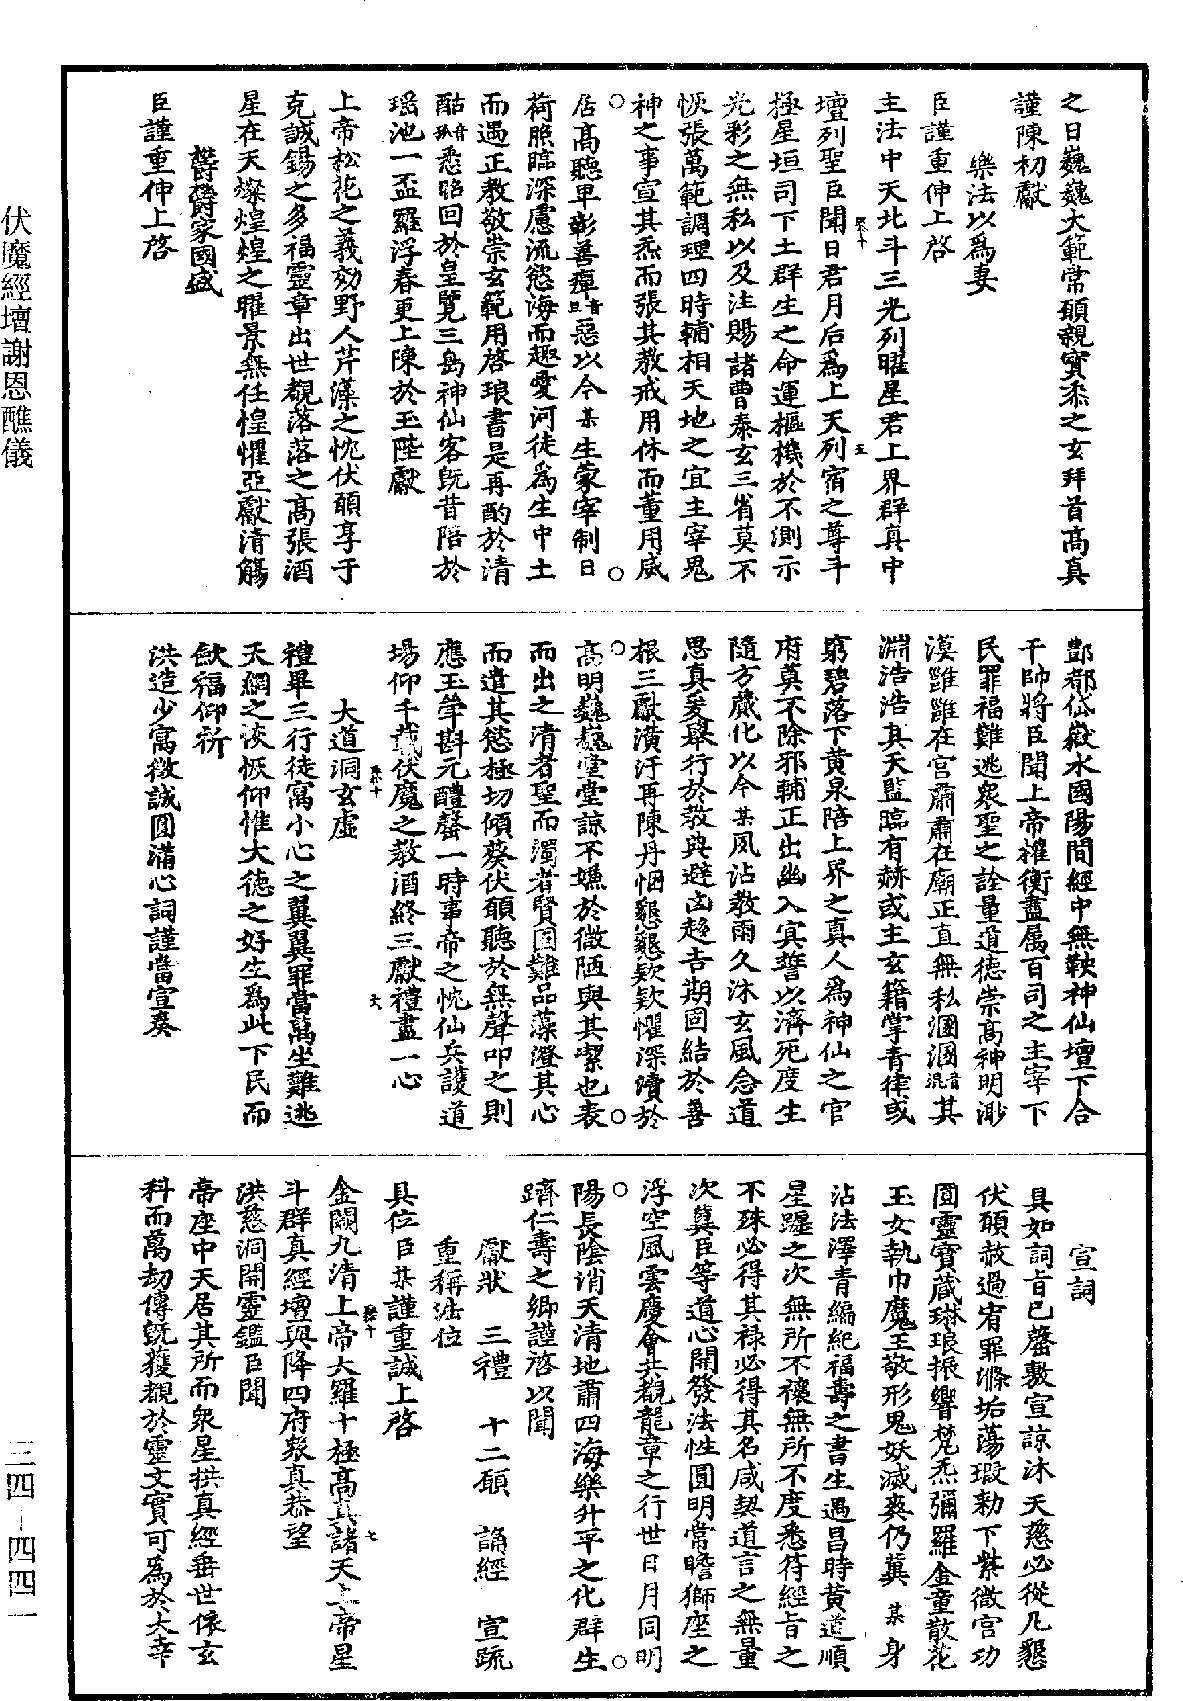 之日巍巍大範常願親寶炁之玄拜首高真
謹陳初獻
樂法以爲妻
臣謹重伸上啓
主法中天北斗三光列曜星君上界群真中
壇列聖臣聞日君月后爲上天列宿之尊斗
極星垣司下土群生之命運樞機於不測示
光彩之無私以及注賜諸曹泰玄三省莫不
恢張萬範調理四時輔相天地之宜主宰鬼
神之事宣其炁而張其教戒用休而董用威
居高聽卑彰善癉音旦惡以今某生蒙宰制日
荷照臨深慮流慾海而趣愛河徒爲生中土
而遇正教敬崇玄範用啓琅書是再酌於清
酤音孤悉昭回於皇覽三島神仙客既昔陪於
瑶池一盃羅浮春更上陳於玉陛獻
上帝松花之義効野人芹藻之忱伏願享于
克誠錫之多福靈章出世覩落落之高張酒
星在天燦煌煌之曜景無任惶懼亞獻清觴
欝欝家國盛
臣謹重伸上啓
酆都岱嶽水國陽間經中無鞅神仙壇下合
干帥將臣聞上帝權衡盡属百司之主宰下
民罪福難逃衆聖之詮量道德崇高神明渺
漠雝雝在宮肅肅在廟正直無私溷溷音混其
淵浩浩其天監臨有赫或主玄籍掌青律或
窮碧落下黄泉陪上界之真人為神仙之官
府莫不除邪輔正出幽入冥誓以濟死度生
隨方歲化以今某夙沾教雨久沐玄風念道
思真爰舉行於教典避凶趍吉期固結於善
根三獻潢汙再陳丹悃懇懇欵欵懼深瀆於
高明巍巍堂堂諒不嫌於微陋與其潔也表
而出之清者聖而濁者賢固難品藻澄其心
而遣其慾極切傾葵伏願聽於無聲叩之則
應玉斚斟元醴罄一時事帝之忱仙兵護道
場仰千載伏魔之教酒終三獻禮盡一心
大道洞玄虛
禮畢三行徒寓小心之翼翼罪當萬坐難逃
天網之恢恢仰惟大德之好生爲此下民而
歛福仰祈
洪造少寓微誠圓滿心詞謹當宣奏
宣詞
具如詞旨已罄敷宣諒沐天慈必從凡懇
伏願赦過宥罪滌垢蕩瑕勑下紫微宮功
圓靈寶蔵琳琅振響梵炁彌羅金童散花
玉女執巾魔王敬形鬼妖滅爽仍冀某身
沾法澤青編紀福壽之書生遇昌時黄道順
星躔之次無所不禳無所不度悉符經旨之
不殊必得其禄必得其名咸契道言之無量
次冀臣等道心開發法性圓明常瞻獅座之
浮空風雲慶會共覩龍章之行世日月同明
陽長陰消天清地肅四海樂升平之化群生
躋仁壽之鄉謹啓以聞
獻狀　三禮　十二願　誦經　宣疏
重稱法位
具位臣某謹重誠上啓
金闕九清上帝大羅十極高真諸天上帝星
斗群真經壇與降四府衆真恭望
洪慈洞開靈鑑臣聞
帝座中天居其所而衆星拱真經垂世依玄
科而萬劫傳既獲覩於靈文實可為於大幸
伏魔經壇謝恩醮儀
三四－四四一